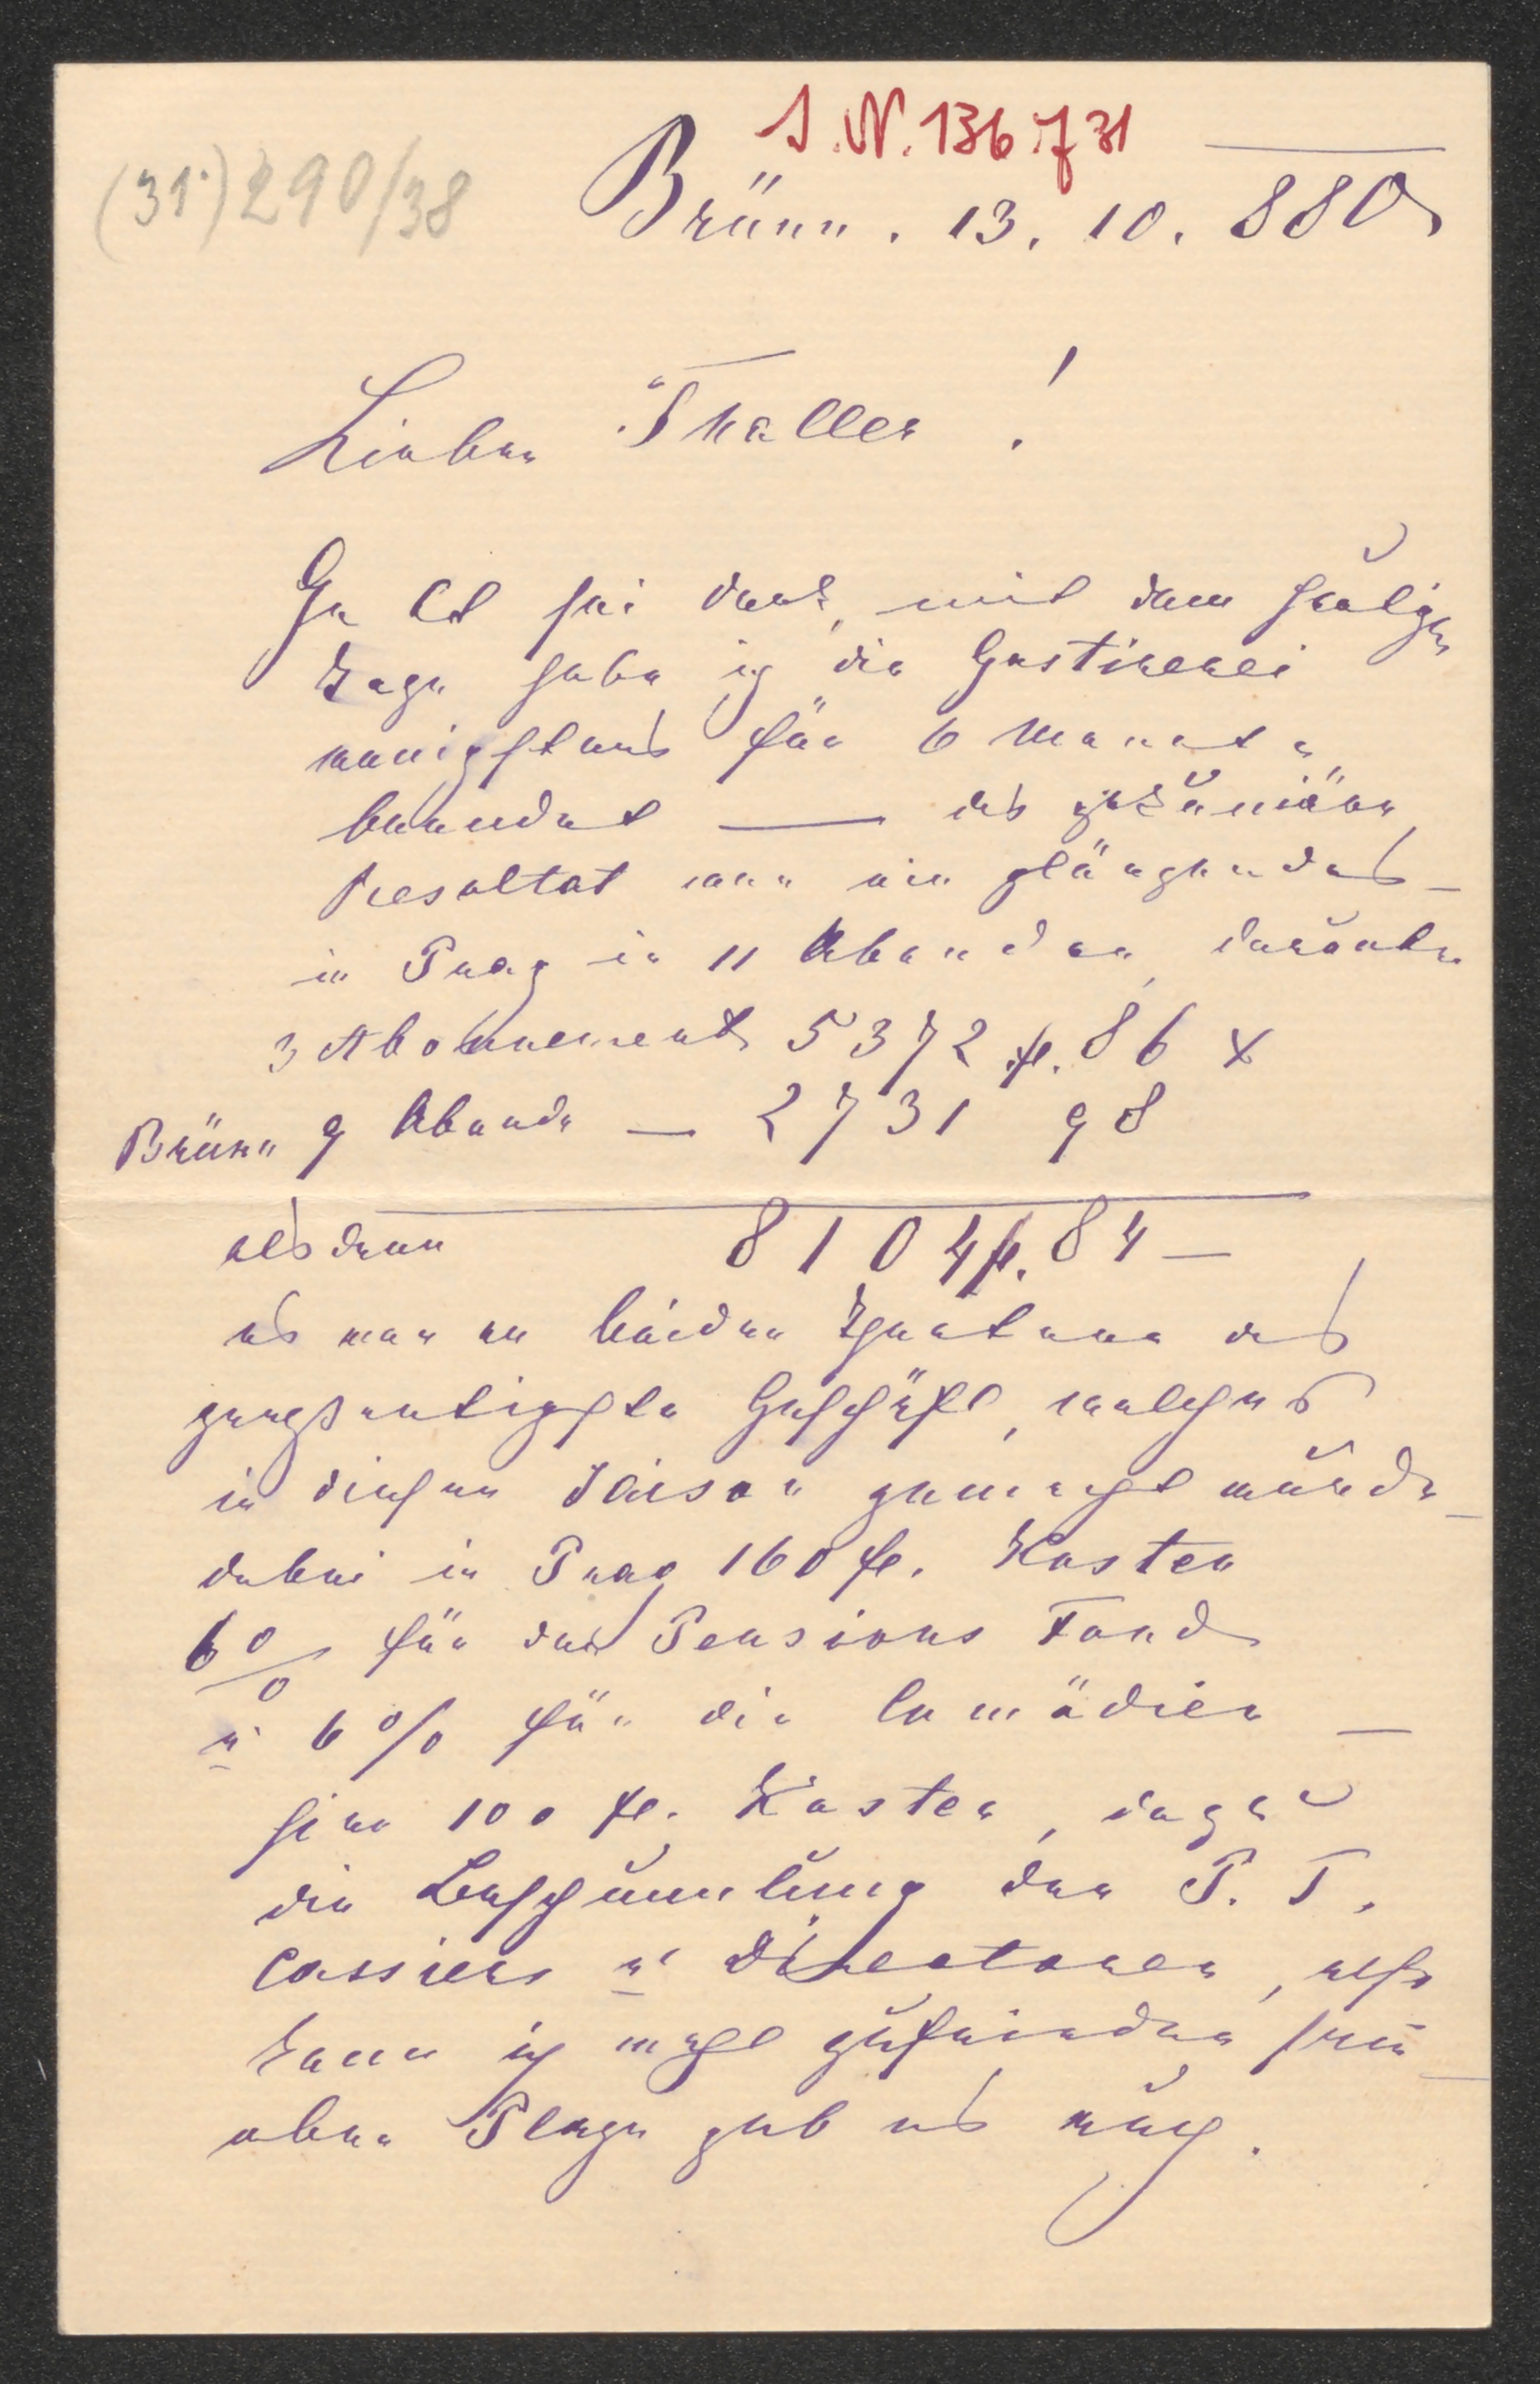 I. N. 136.731
(31.) 290/38
Brünn. 13. 10. 880
Lieber Thaller!
Gott sei dank, mit dem heutigen
Tage habe ich die Gastirerei
wenigstens für 6 Monate
beendet — das pekuniäre
Resultat war ein glänzendes –
in Prag in 11 Abenden, darunter
3 Abonnement 5372 fl. 86 x
Brünn 9 Abende — 2731 98
als dann 8104 fl. 84 —
es war an beiden Theatern das
großartigste Geschäft, welches
in dieser Saison gemacht wurde –
dabei in Prag 160 fl. Kosten
6% für den Pensions Fond
u 6% für die Comödien —
hier 100 fl. Kosten, dazu
die Beschummlung der P. T.
Cassiere u Directoren, also
kann ich wohl zufrieden sein –
aber Plage gab es auch.